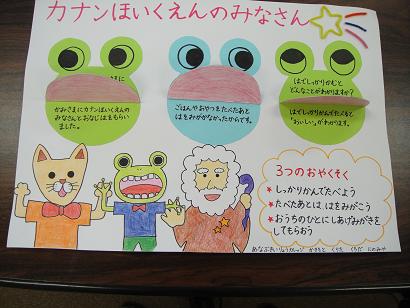 カナンほいくえんのみなさん
かみさまにカナンほいくえんの
みなさんとおなじはをもらい
ました。
ごはんやおやつをたべたあと
はをみがかなかったからです。
はでしっかりかむと
どんなことがわかりますか?
はでしっかりかんでたべると
「おいしい」がわかります。
3つのおやくそく
★しっかりかんでたべよう
★たべたあとは、はをみがこう
★おうちのひとにしあげみがきを
してもらおう